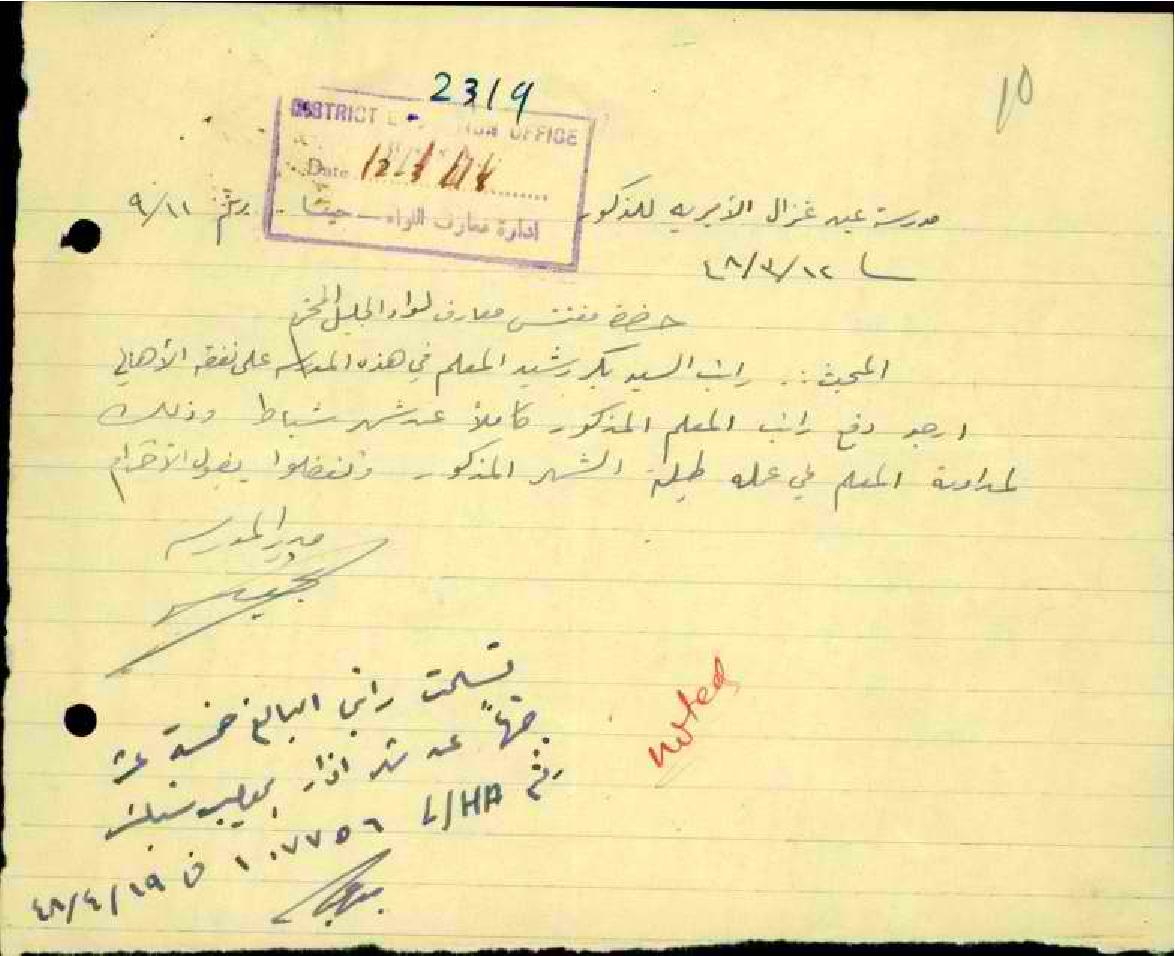 23/9
10
DISTRICT OFFICE
Date
ادارة معارف اللواء — حيفا
مدرسة عين غزال الأميرية للذكور رقم ٩/١١
١٢/٣/٤٨
حضرة مفتش معارف لواء الجليل المحترم
المبحث :. راتب السيد بكر رشيد المعلم في هذه المدرسه على نفقة الأهالي
ارجو دفع راتب المعلم المذكور كاملاً عن شهر شباط وذلك
لمداومة المعلم في عمله طيلة الشهر المذكور وتفضلوا بقبول الأحترام
مدير المدرسه
noted
تسلمت راتبي البالغ خمسة عشر
جنيهاً عن شهر اذار بموجب شك
رقم L/HA ١٠٧٧٥٦ في ١٩/٤/٤٨